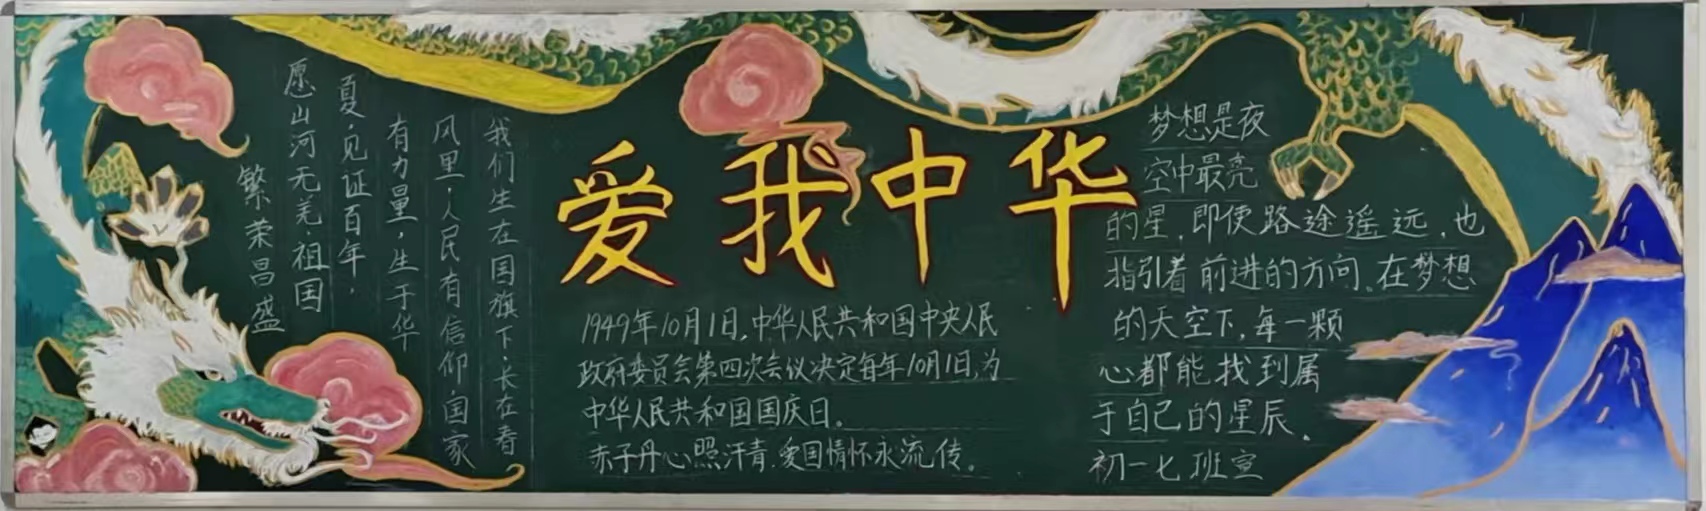 爱我中华
我们生在国旗下,长在春
风里,人民有信仰,国家
有力量,生于华
夏,见证百年,
愿山河无恙,祖国
繁荣昌盛
1949年10月1日,中华人民共和国中央人民
政府委员会第四次会议决定每年10月1日,为
中华人民共和国国庆日。
赤子丹心照汗青,爱国情怀永流传。
梦想是夜
空中最亮
的星,即使路途遥远,也
指引着前进的方向。在梦想
的天空下,每一颗
心都能找到属
于自己的星辰。
初一七班宣